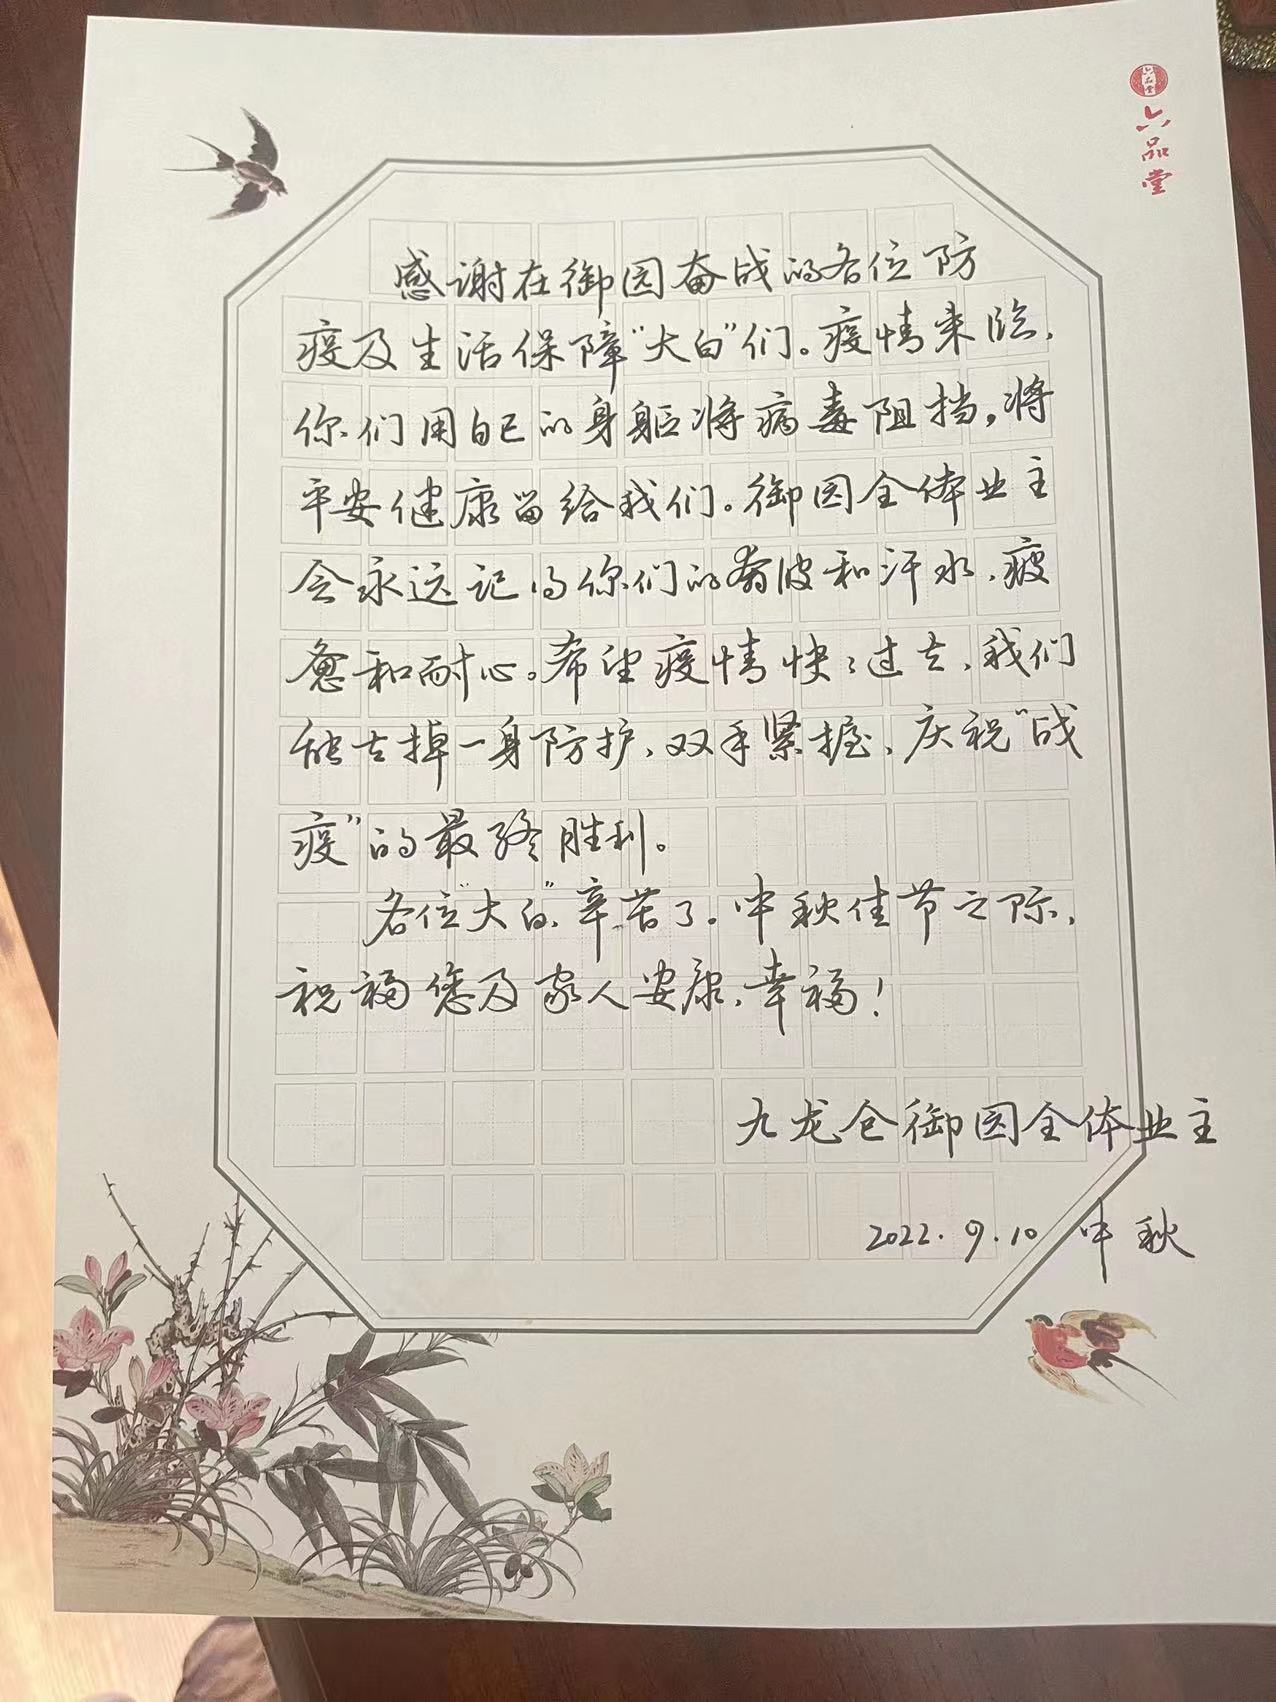 六品堂
六品堂
感谢在御园奋战的各位防
疫及生活保障“大白”们。疫情来临，
你们用自己的身躯将病毒阻挡，将
平安健康留给我们。御园全体业主
会永远记得你们的奔波和汗水，疲
惫和耐心。希望疫情快快过去，我们
能去掉一身防护，双手紧握，庆祝“战
疫”的最终胜利。
各位“大白”，辛苦了。中秋佳节之际，
祝福您及家人安康，幸福！
九龙仓御园全体业主
2022.9.10 中秋